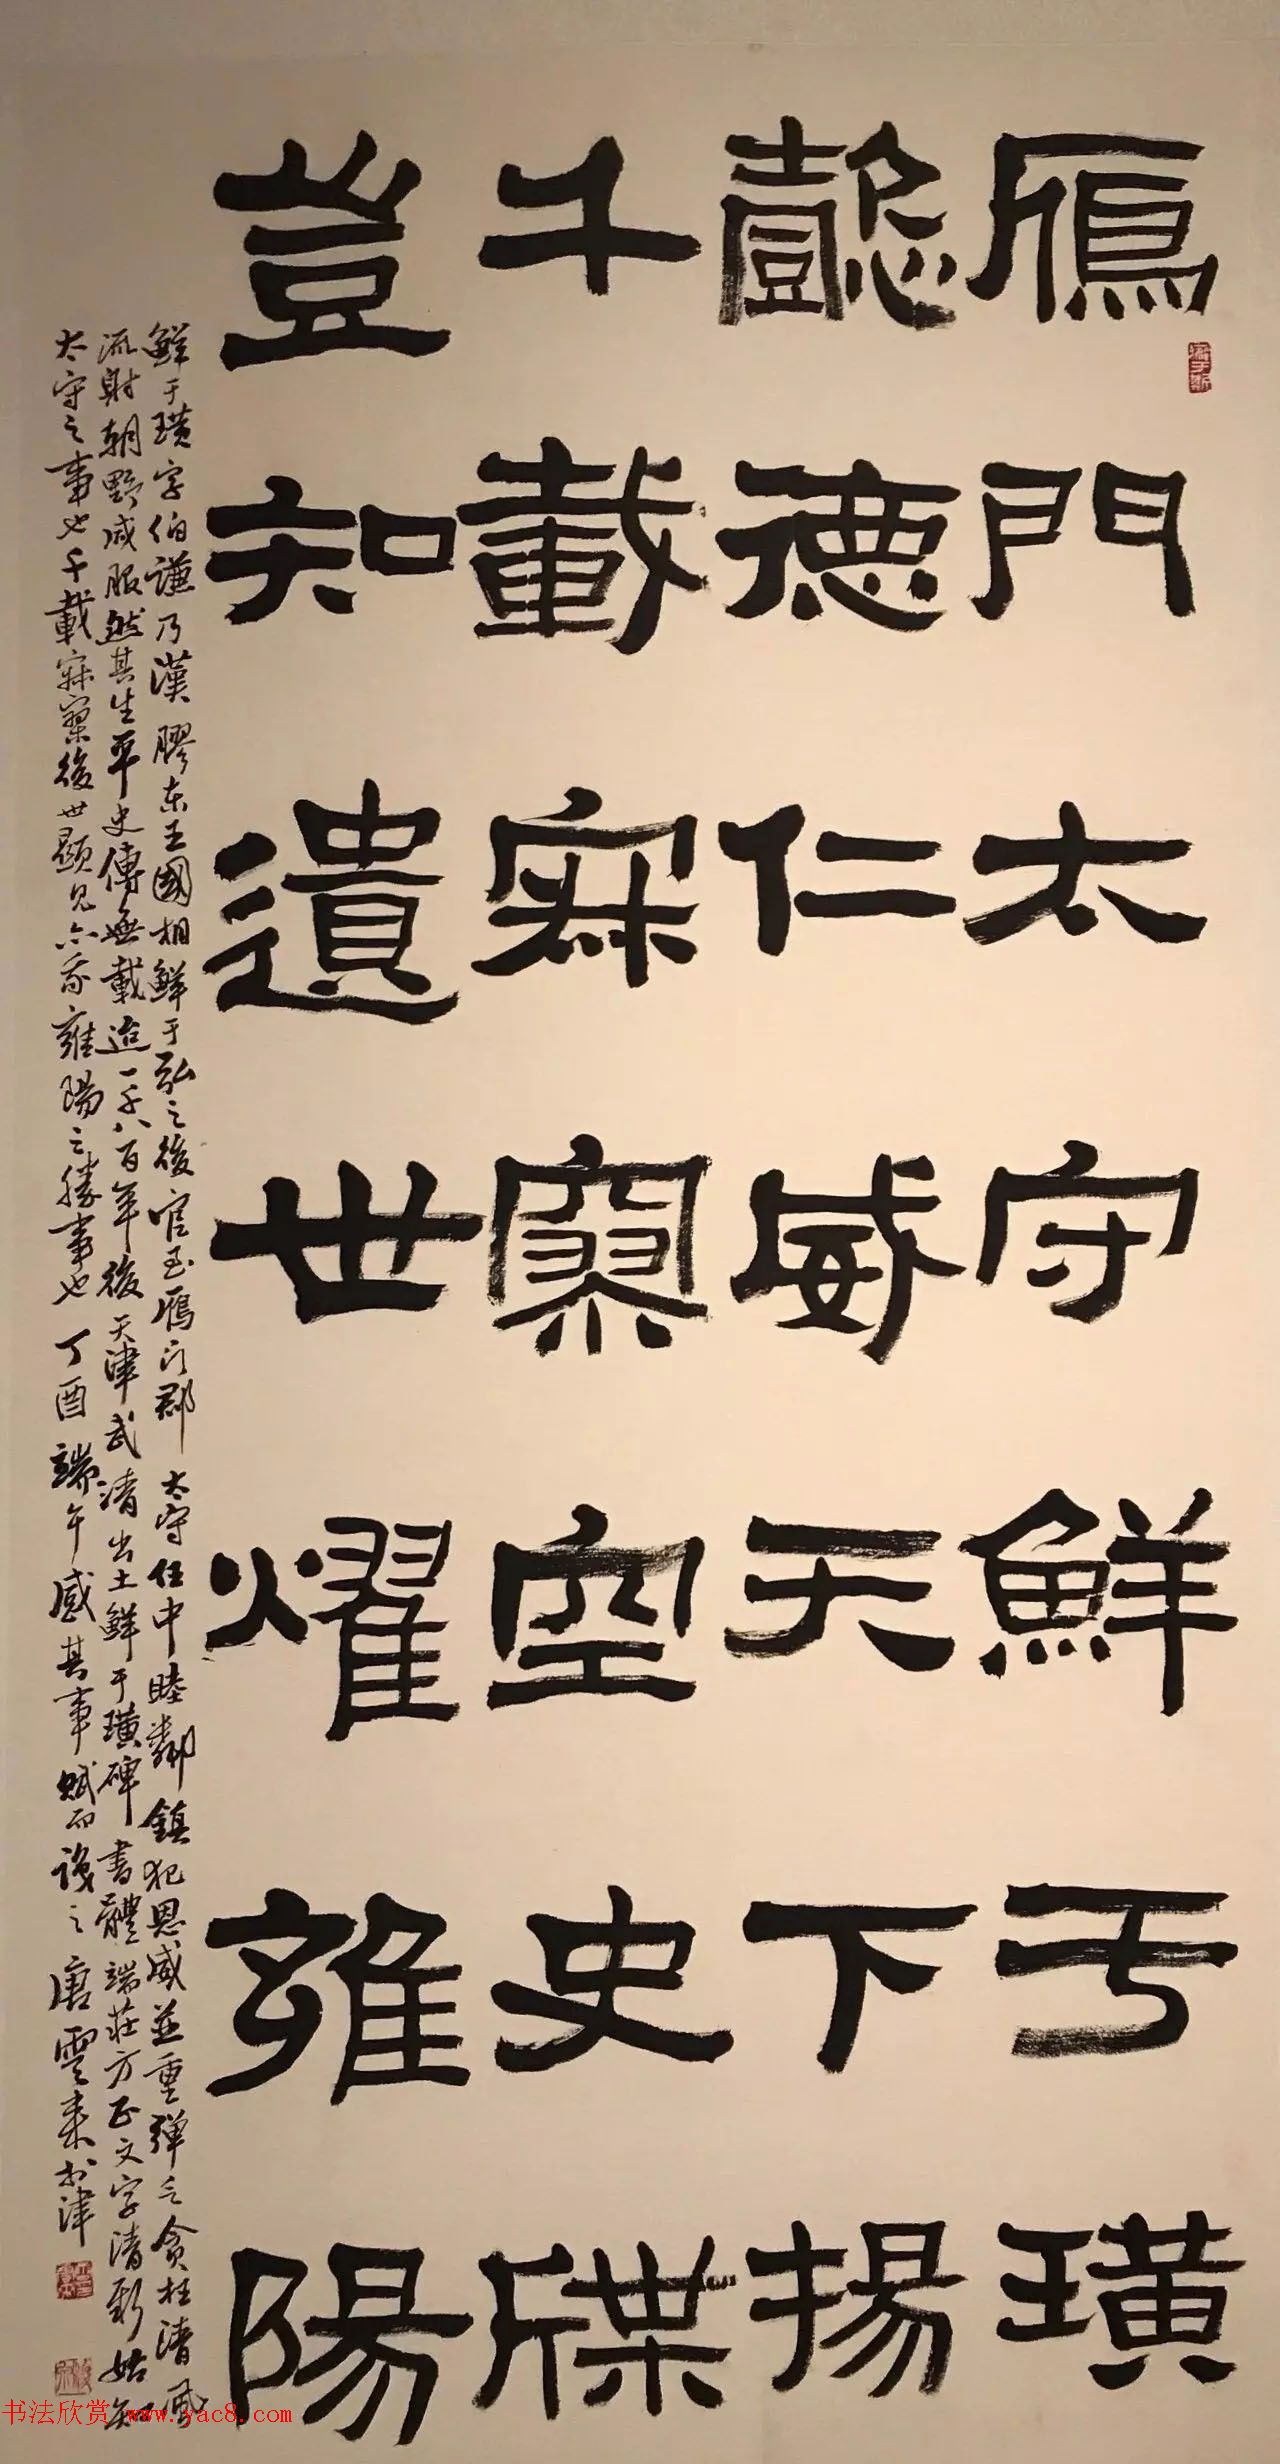 鴈門太守鮮于璜
懿德仁威天下揚
千載寂寞空史牒
豈知遺世耀雍陽
鮮于璜字伯謙乃漢膠東王國相鮮于弘之後官至鴈门郡太守任中睦鄰鎮犯恩威並重彈之貪枉清風
流射朝野咸服然其生平史傳無載迨一千八百年後天津武清出土鮮于璜碑書體端莊方正文字清新始知
太守之事也千載寂寞後世顯見亦我雍陽之勝事也丁酉端午感其事賦而識之唐雲來於津
书法欣赏 www.yac8.com